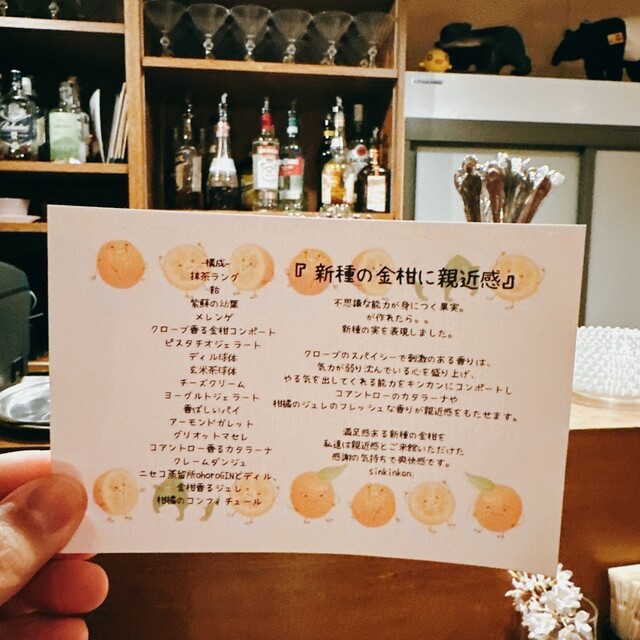 -構成-
抹茶ラング
飴
紫蘇の幼葉
メレンゲ
クローブ香る金柑コンポート
ピスタチオジェラート
ディル球体
玄米茶球体
チーズクリーム
ヨーグルトジェラート
香ばしいパイ
アーモンドガレット
グリオットマセレ
コアントロー香るカタラーナ
クレームダンジュ
ニセコ蒸留所ohoroGINとディル
金柑香るジュレ
柑橘のコンフィチュール
『新種の金柑に親近感』
不思議な能力が身につく果実。
が作れたら。。
新種の実を表現しました。
クローブのスパイシーで刺激のある香りは、
気力が弱り沈んでいる心を盛り上げ、
やる気を出してくれる能力をキンカンにコンポートし
コアントローのカタラーナや
柑橘のジュレのフレッシュな香りが親近感をもたせます。
満足感ある新種の金柑を
私達は親近感とご来館いただけた
感謝の気持ちで爽快感です。
sinkinkan.